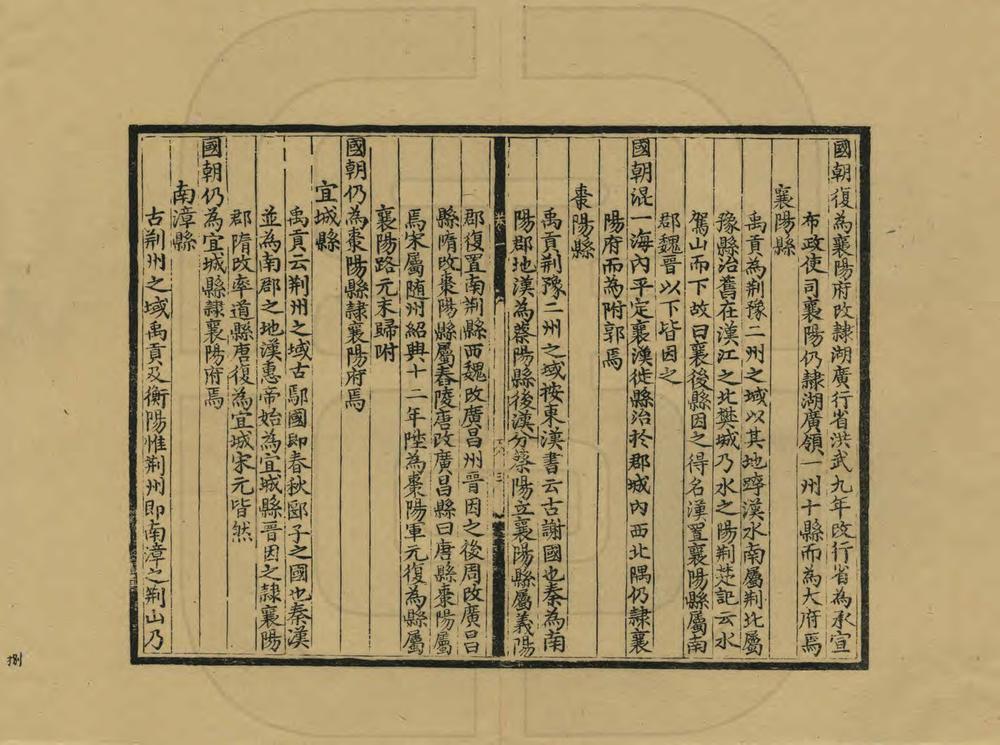 國朝復為襄陽府改隸湖廣行省洪武九年改行省為承宣
布政使司襄陽仍隸湖廣領一州十縣而為大府焉
襄陽縣
禹貢為荆豫二州之域以其地蹲漢水南屬荆北屬
豫縣治舊在漢江之北樊城乃水之陽荆楚記云水
駕山而下故曰襄後縣因之得名漢置襄陽縣屬南
郡魏晉以下皆因之
國朝混一海內平定襄漢徙縣治於郡城內西北隅仍隸襄
陽府而為附郭焉
棗陽縣
禹貢荆豫二州之域按東漢書云古謝國也秦為南
陽郡地漢為蔡陽縣後漢分蔡陽立襄陽縣屬義陽
卷一
三
郡復置南荆縣西魏改廣昌州晉因之後周改廣昌
縣隋改棗陽縣屬舂陵唐改廣昌縣曰唐縣棗陽屬
焉宋屬随州紹興十二年陞為棗陽軍元復為縣屬
襄陽路元末歸附
國朝仍為棗陽縣隸襄陽府焉
宜城縣
禹貢云荆州之域古鄢國即春秋郾子之國也秦漢
並為南郡之地漢惠帝始為宜城縣晉因之隸襄陽
郡隋改率道縣唐復為宜城宋元皆然
國朝仍為宜城縣隸襄陽府焉
南漳縣
古荆州之域禹貢及衡陽惟荆州即南漳之荆山乃